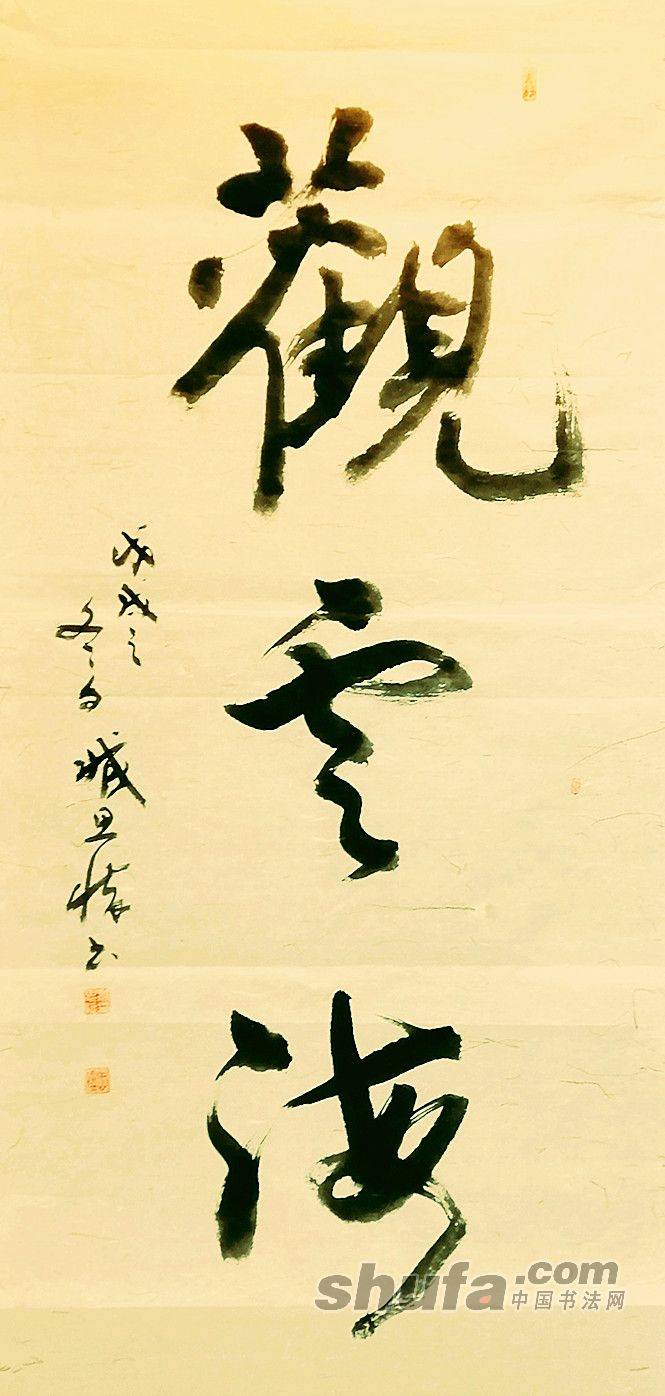 觀雲海
戊戌之
冬
書
shufa.com
中国书法网